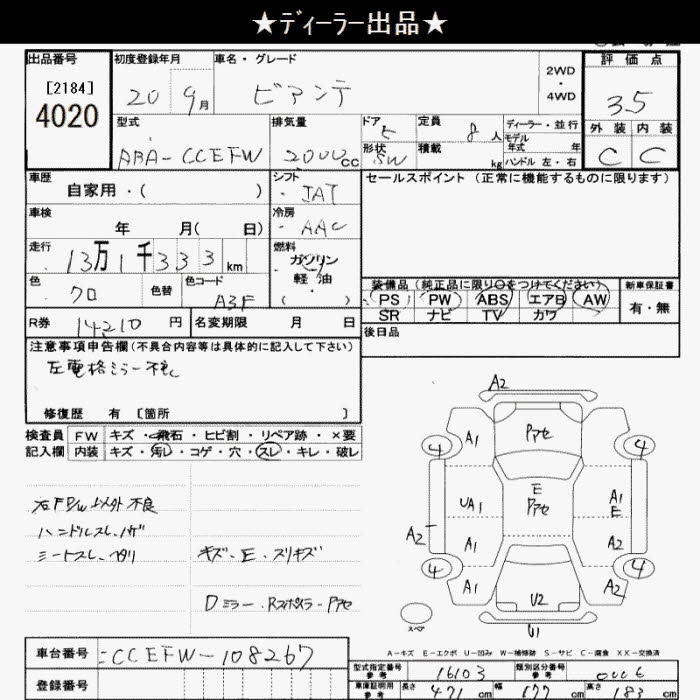 ★ディーラー出品★
出品番号
[2184]
4020
初度登録年月
20 9月
車名・グレード
ビアンテ
2WD
・
4WD
評価点
3.5
外装 内装
C C
型式
ABA-CCEFW
排気量
2000cc
ドア
5
形状
SW
定員
8人
積載
kg
ディーラー・並行
モデル
年式 年
ハンドル 左・右
車歴
自家用・( )
シフト
IAT
セールスポイント (正常に機能するものに限ります)
車検
年 月( 日)
冷房
AAC
走行
13万1千333km
燃料
ガソリン
軽・油
( )
色
クロ
色替
色コード
A3F
装備品(純正品に限り○をつけてください)
PS PW ABS エアB AW
SR ナビ TV カワ
新車保証書
有・無
R券
14210円
名変期限 月 日
後日品
注意事項申告欄(不具合内容等は具体的に記入して下さい)
左電格ミラー不良
修復歴 有 [箇所 ]
検査員
記入欄
FW キズ・飛石・ヒビ割・リペア跡・×要
内装 キズ・汚レ・コゲ・穴・スレ・キレ・破レ
右FP/W以外不良
ハンドルスレ、ハゲ
シートスレ、ヘタリ
キズ・E・スリキズ
Dミラー・Rスポイラー・Pアセ
A2
4
4
A1
Pアセ
UA1
E
Pアセ
A1
E
A2
A1
A2
4
4
A1
A2
U2
U1
スペア
A-キズ E-エクボ U-凹み W-補修跡 S-サビ C-腐食 XX-交換済
車台番号
CCEFW-108267
登録番号
型式指定番号
参考
16103
類別区分番号
参考
0006
車庫証明用
参考
長さ
471cm
幅
177cm
高さ
183cm